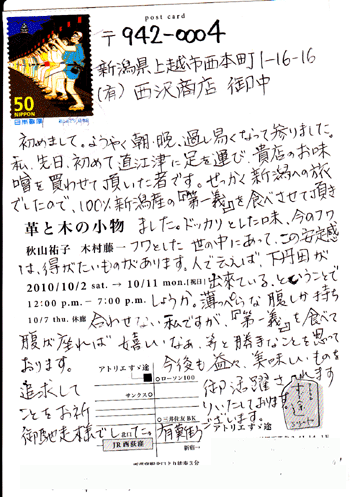 post card
50
NIPPON
日本郵便
〒942-0004
新潟県上越市西本町1-16-16
(有) 西沢商店 御中
初めまして。ようやく朝・晩、過し易くなって参りました。
私、先日、初めて直江津に足を運び、貴店のお味
噌を買わせて頂いた者です。せっかく新潟への旅
でしたので、100%新潟産の『第一義』を食べさせて頂き
ました。ドッカリとした味、今のフワ
フワとした世の中にあって、この安定感
は、得がたいものがあります。人で云えば、下丹田が
出来ている、ということで
しょうか。薄っぺらな腹しか持ち
合わせない私ですが、『第一義』を食べて
腹が座れば嬉しいなあ、等と勝手なことを思って
おります。
今後も益々、美味しいものを
追求して
御活躍されます
ことをお祈
りいたしております。
御馳走様でした。
有難う
ございます。
革と木の小物
秋山祐子 木村藤一
2010/10/2 sat. → 10/11 mon.[祝日]
12:00 p.m.– 7:00 p.m.
10/7 thu. 休廊
アトリエすゞ途
ローソン100
サンクス
三井住友BK
北口
JR西荻窪
新宿→
アトリエすゞ途